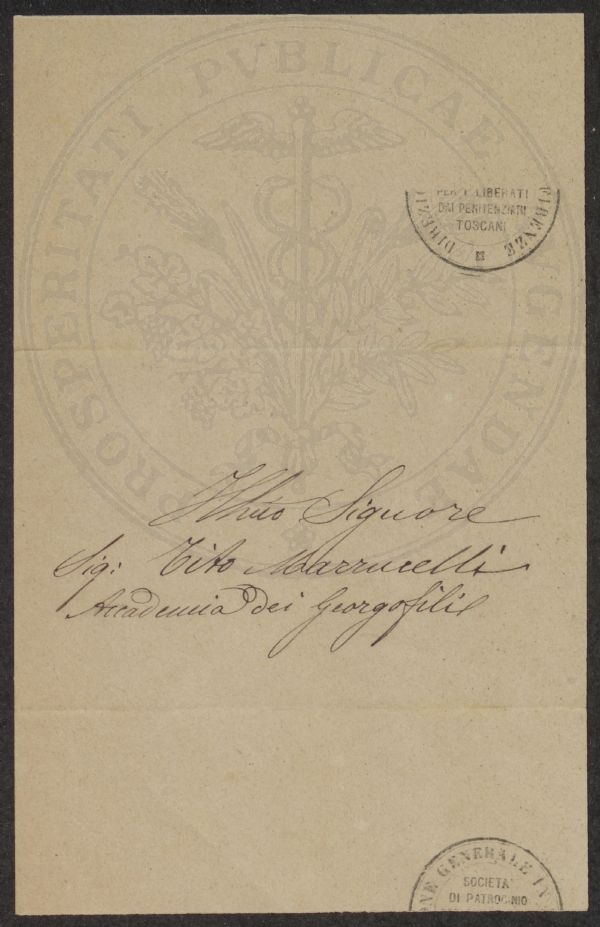 PROSPERITATI PVBLICAE AVGENDAE
PER I LIBERATI
DAI PENITENZIARI
TOSCANI
FIRENZE
Illmo Signore
Sig: Tito Marrucelli
Accademia dei Georgofili
NE GENERALE IN
SOCIETA'
DI PATROCINIO